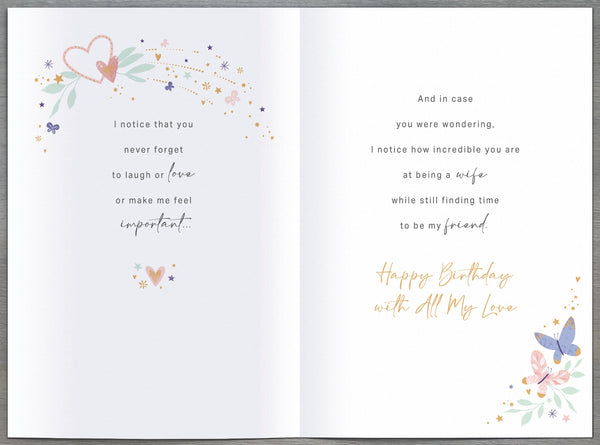 I notice that you
never forget
to laugh or love
or make me feel
important...
And in case
you were wondering,
I notice how incredible you are
at being a wife
while still finding time
to be my friend.
Happy Birthday
with All My Love